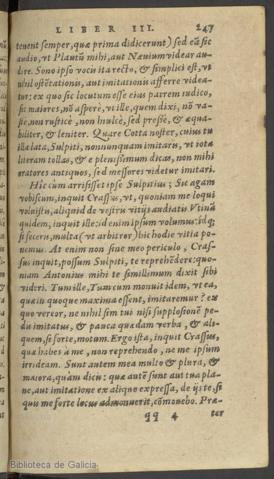 LIBER III. 247
tenent semper, quæ prima didicerunt) sed eã sic
audio, vt Plautũ mihi, aut Næuium videar au-
dire. Sono ipso vocis ita recto, & simplici est, vt
nihil ostẽtationis, aut imitationis afferre videa-
tur: ex quo sic locutum esse eius patrem iudico,
sic maiores, nõ asperè, vt ille, quem dixi, nõ va-
stè, non rusticè, non hiulcè, sed pressè, & æqua-
biliter, & leniter. Quare Cotta noster, cuius tu
illa lata, Sulpiti, nonnunquam imitaris, vt iota
literam tollas, & e plenissimum dicas, non mihi
oratores antiquos, sed messores videtur imitari.
Hic cùm arrisisset ipse Sulpitius; Sic agam
vobiscum, inquit Crassus, vt, quoniam me loqui
voluistis, aliquid de vestris vitijs audiatis. Vtinã
quidem, inquit ille: id enim ipsum volumus: idq;
si feceris, multa (vt arbitror) hic hodie vitia po-
nemus. At enim non sine meo periculo, Cras-
sus inquit, possum Sulpiti, te reprehẽdere: quo-
niam Antonius mihi te simillimum dixit sibi
videri. Tum ille, Tum cum monuit idem, vt ea,
quæ in quoque maxima essent, imitaremur? ex
quo vereor, ne nihil sim tui nisi supplosionẽ pe-
dis imitatus, & pauca quædam verba, & ali-
quem, si forte, motum. Ergo ista, inquit Crassus,
quæ habes à me, non reprehendo, ne me ipsum
irrideam. Sunt autem mea multò & plura, &
maiora, quàm dicis: quæ autẽ sunt aut tua pla-
ne, aut imitatione ex aliquo expressa, de ijs te, si
quis me forte locus admonuerit, cõmonebo. Præ-
qq 4 ter
Biblioteca de Galicia